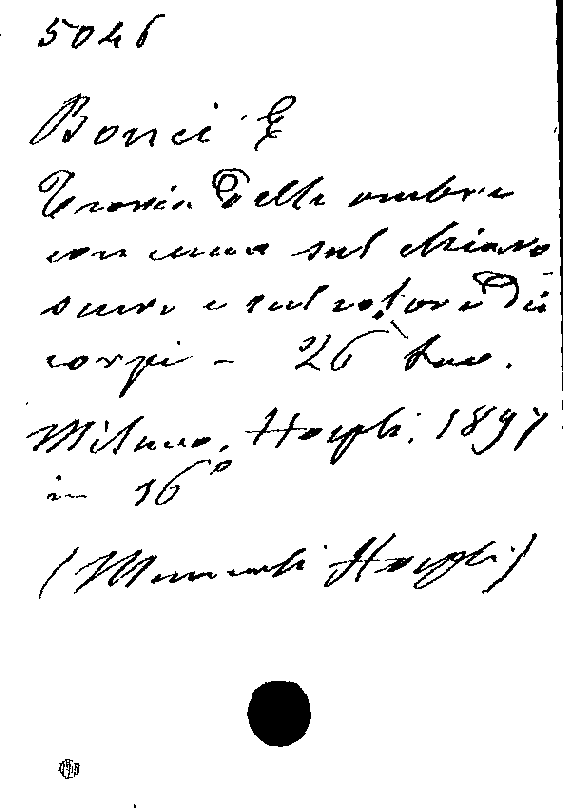 5046
Bonci E
Teoria delle ombre
con cenni sul chiaro
scuro e sul colore dei
corpi - 26 tav.
Milano, Hoepli, 1897
in 16°
(Manuali Hoepli)